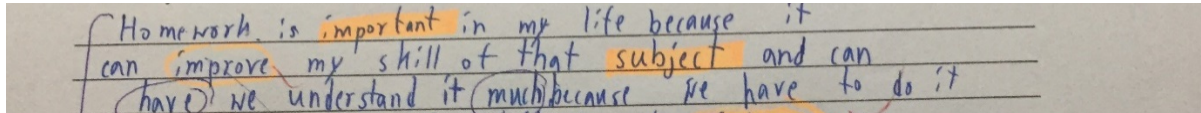 Homework. is important in my life because it
can improve my skill of that subject and can
have we understand it much because we have to do it